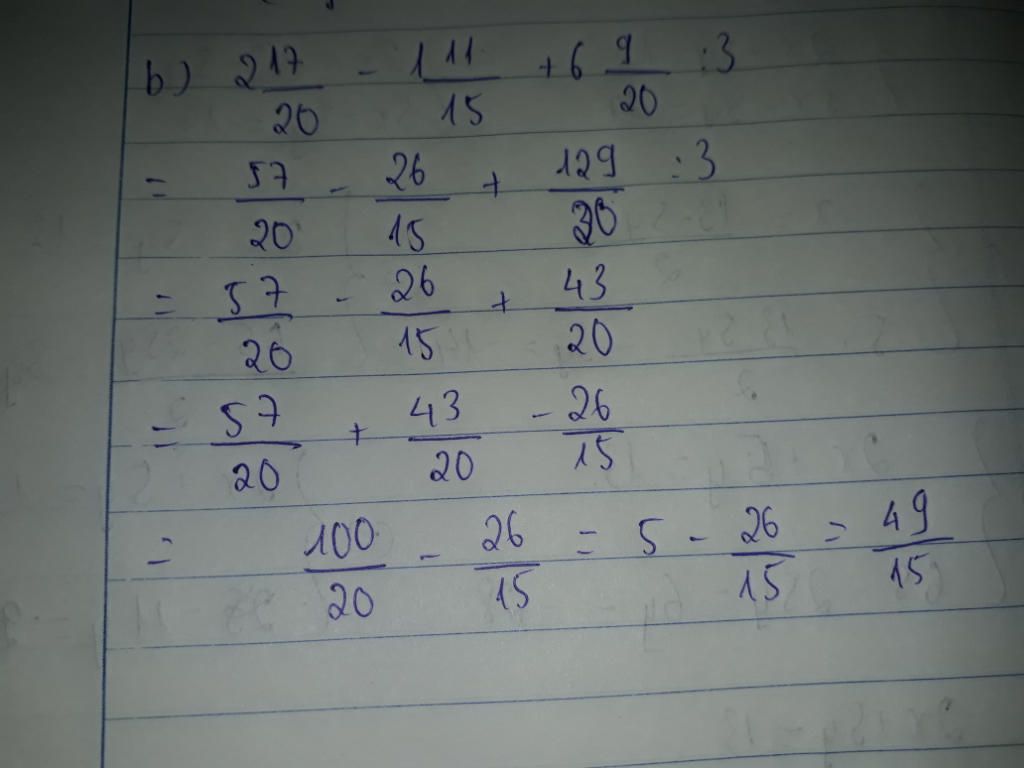 b) 2 17/20 - 1 11/15 + 6 9/20 : 3
= 57/20 - 26/15 + 129/20 : 3
= 57/20 - 26/15 + 43/20
= 57/20 + 43/20 - 26/15
= 100/20 - 26/15 = 5 - 26/15 = 49/15